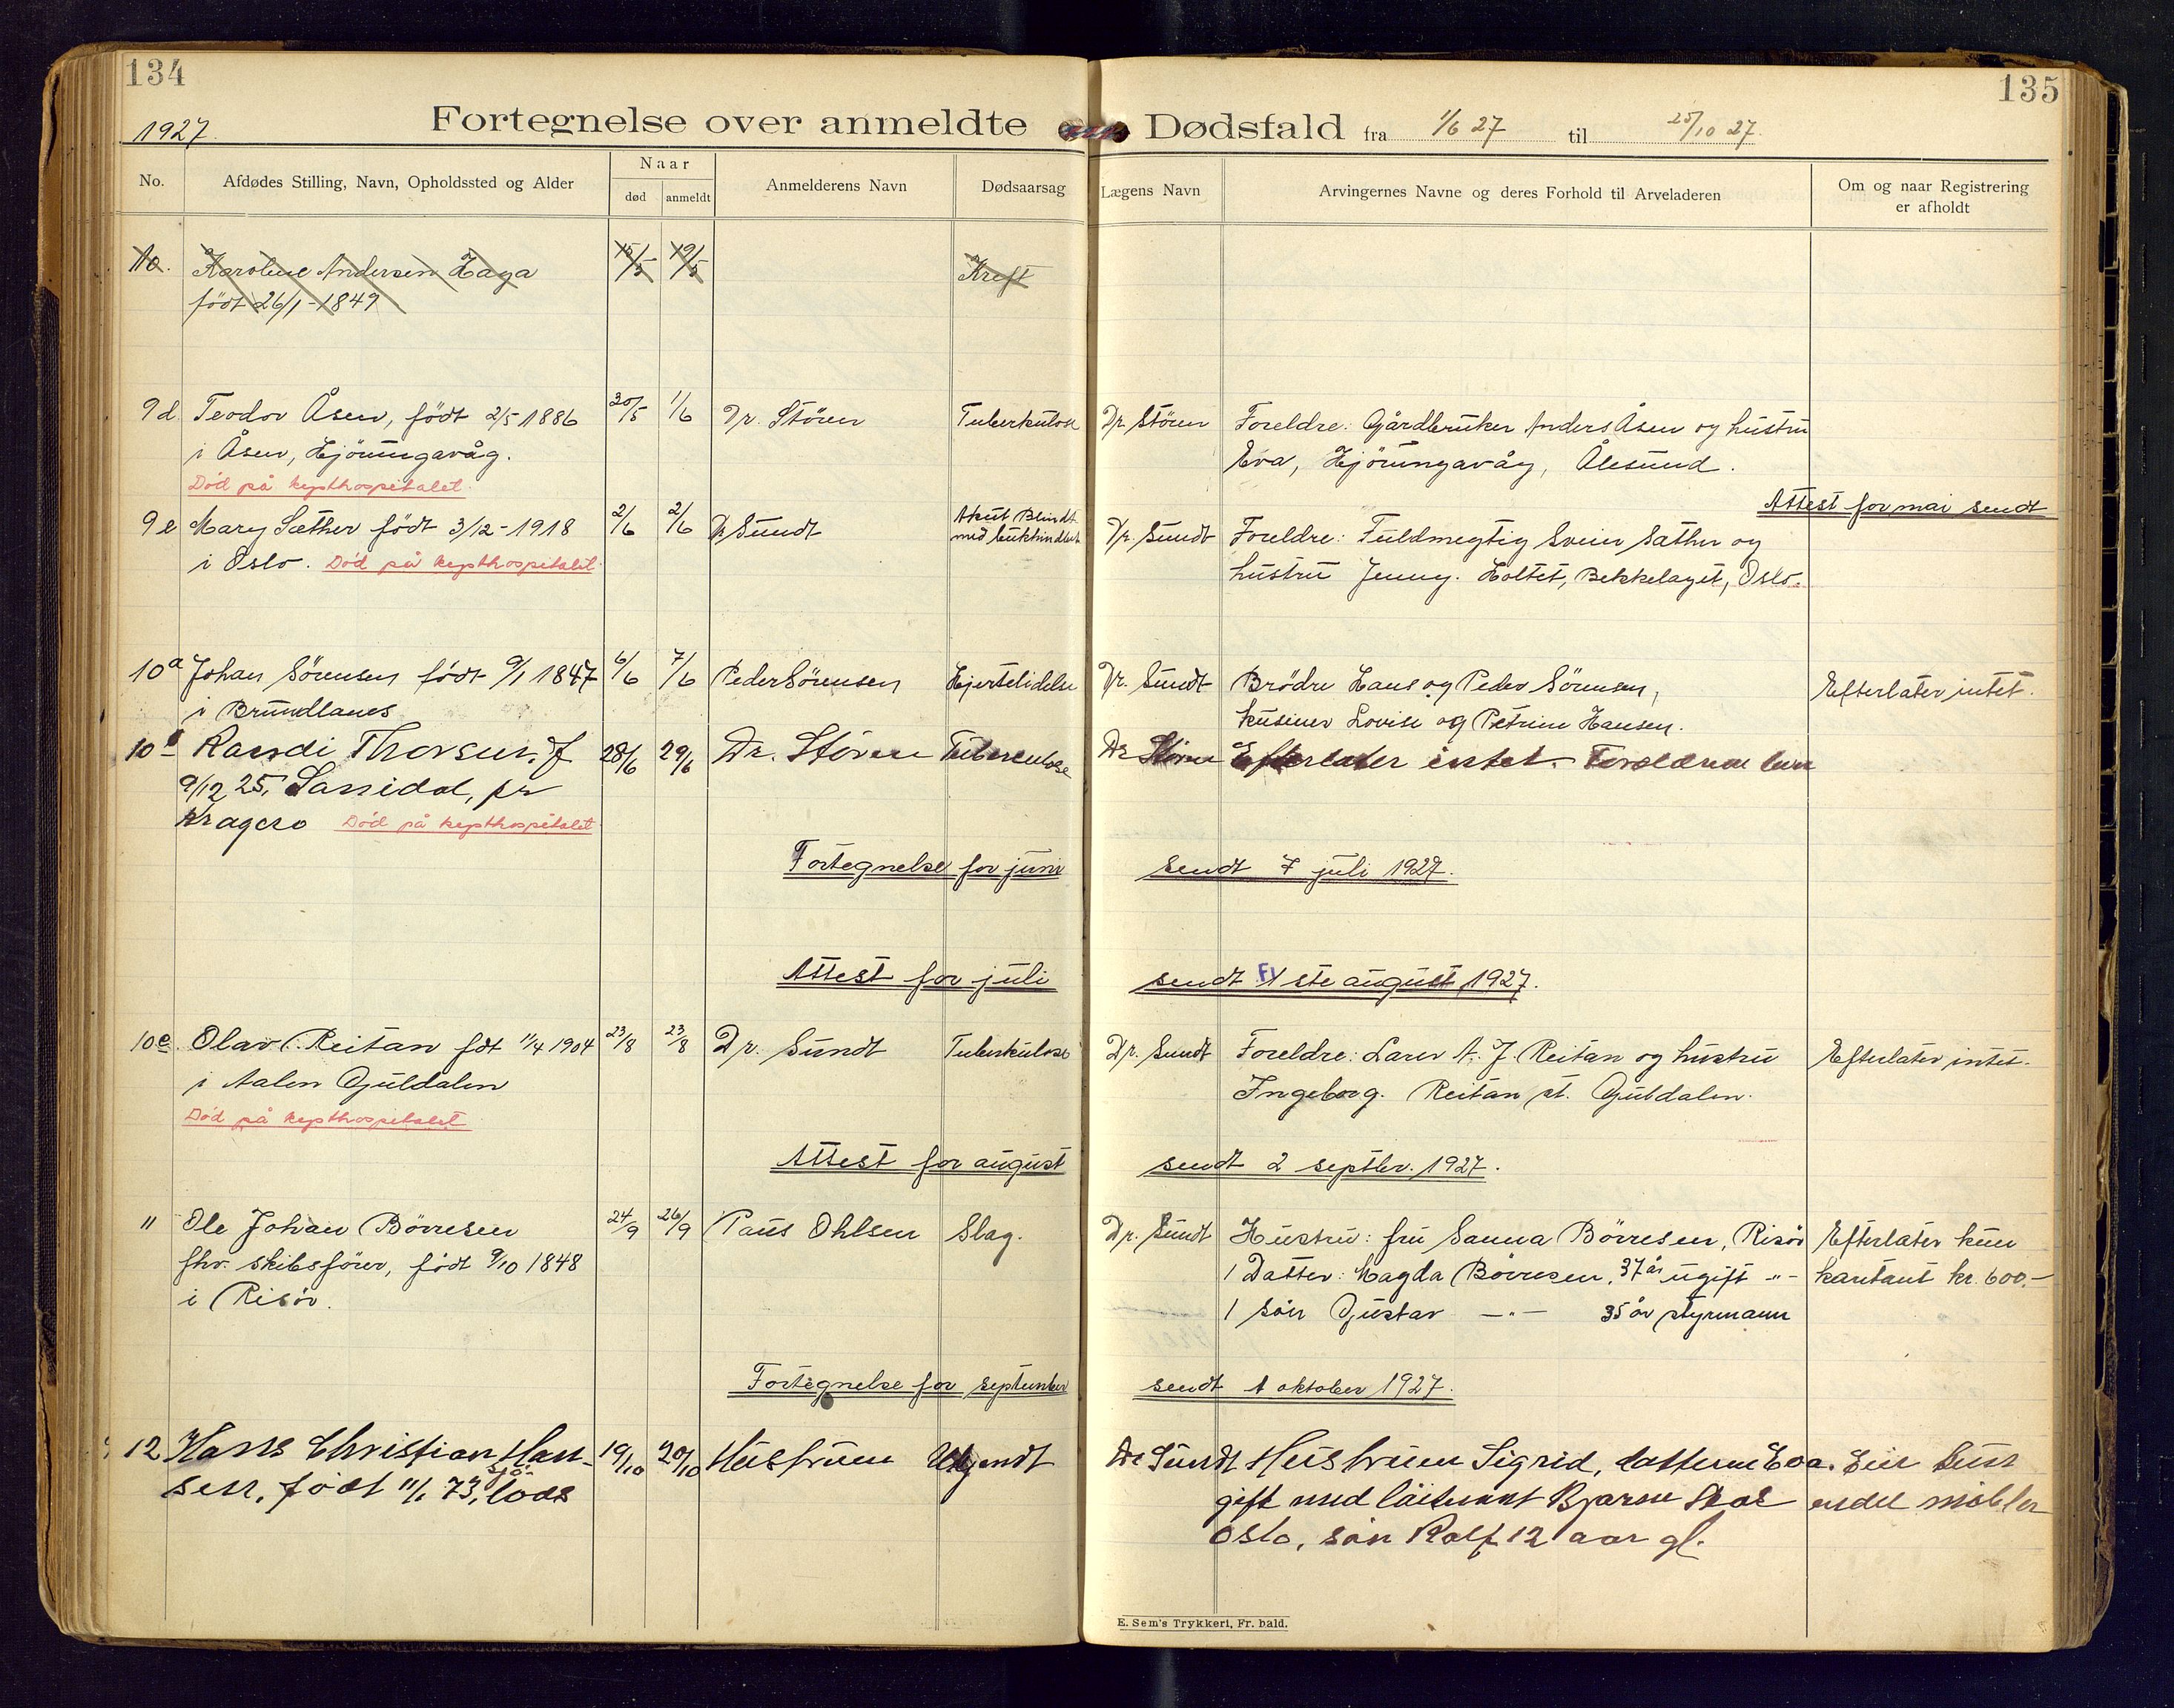 134
135
1927.
Fortegnelse over anmeldte Dødsfald fra 1/6 27 til 25/10 27.
No.
Afdødes Stilling, Navn, Opholdssted og Alder
Naar
død
anmeldt
Anmelderens Navn
Dødsaarsag
Lægens Navn
Arvingernes Navne og deres Forhold til Arveladeren
Om og naar Registrering
er afholdt
10. Karoline Andersen Haga 15/5 19/5 Kreft
født 26/1-1849
9d Teodor Åsen, født 2/5 1886 30/5 1/6 Dr. Stören Tuberkulose Dr. Stören Foreldre: Gårdbruker Anders Åsen og hustru
i Åsen, Hjörungavåg. Eva, Hjörungavåg, Ålesund.
Död på kysthospitalet.
Attest for mai sendt
9e Mary Sæther født 3/12-1918 2/6 2/6 Dr Sundt Akut Blindt Dr. Sundt Foreldre: Fuldmegtig Svein Sæther og
i Oslo. Död på kysthospitalet. hustru Jenny. Holtet, Bekkelaget, Oslo.
10a Johan Sörensen födt 9/1 1847 6/6 7/6 Peder Sörensen Hjertelidelse Dr. Sundt Brödre Hans og Peder Sörensen, Efterlater intet.
i Brunlanes kusiner Lovise og Petrine Hansen.
10 Randi Thorsen, f 28/6 29/6 Dr. Stören Tuberculose Dr Stören Efterlater intet. Foreldrene lever
9/12 25, Sannidal, pr
Kragerø Död på kysthospitalet
Fortegnelse for juni sendt 7 juli 1927.
Attest for juli sendt 1ste august 1927.
10c. Olav Reitan fdt 11/4 1904 23/8 23/8 Dr. Sundt Tuberkulose Dr. Sundt Foreldre: Lærer A. J. Reitan og hustru Efterlater intet.
i Aalen Guldalen Ingeborg. Reitan st. Guldalen.
Död på kysthospitalet
Attest for august sendt 2 septbr. 1927.
11 Ole Johan Börresen 24/9 26/9 Paus Ohlsen Slag. Dr. Sundt Hustru: fru Sanna Börresen, Risör Efterlater kun
fhv. skibsförer, födt 9/10 1848 1 Datter: Magda Börresen, 37 år ugift -"- kontant kr. 600.-
i Risör. 1 sön Gustav -"- 35 år styrmann
Fortegnelse for september sendt 1 oktober 1927.
12 Hans Christian Han- 19/10 20/10 Hustruen Dr Sundt Hustruen Sigrid, datteren Eva. Eier kun
sen, født 11/1 73, sjö- lods gift med løitnant Bjarne endel møbler
Oslo, sön Rolf 12 aar gl.
E. Sem's Trykkeri, Fr. hald.